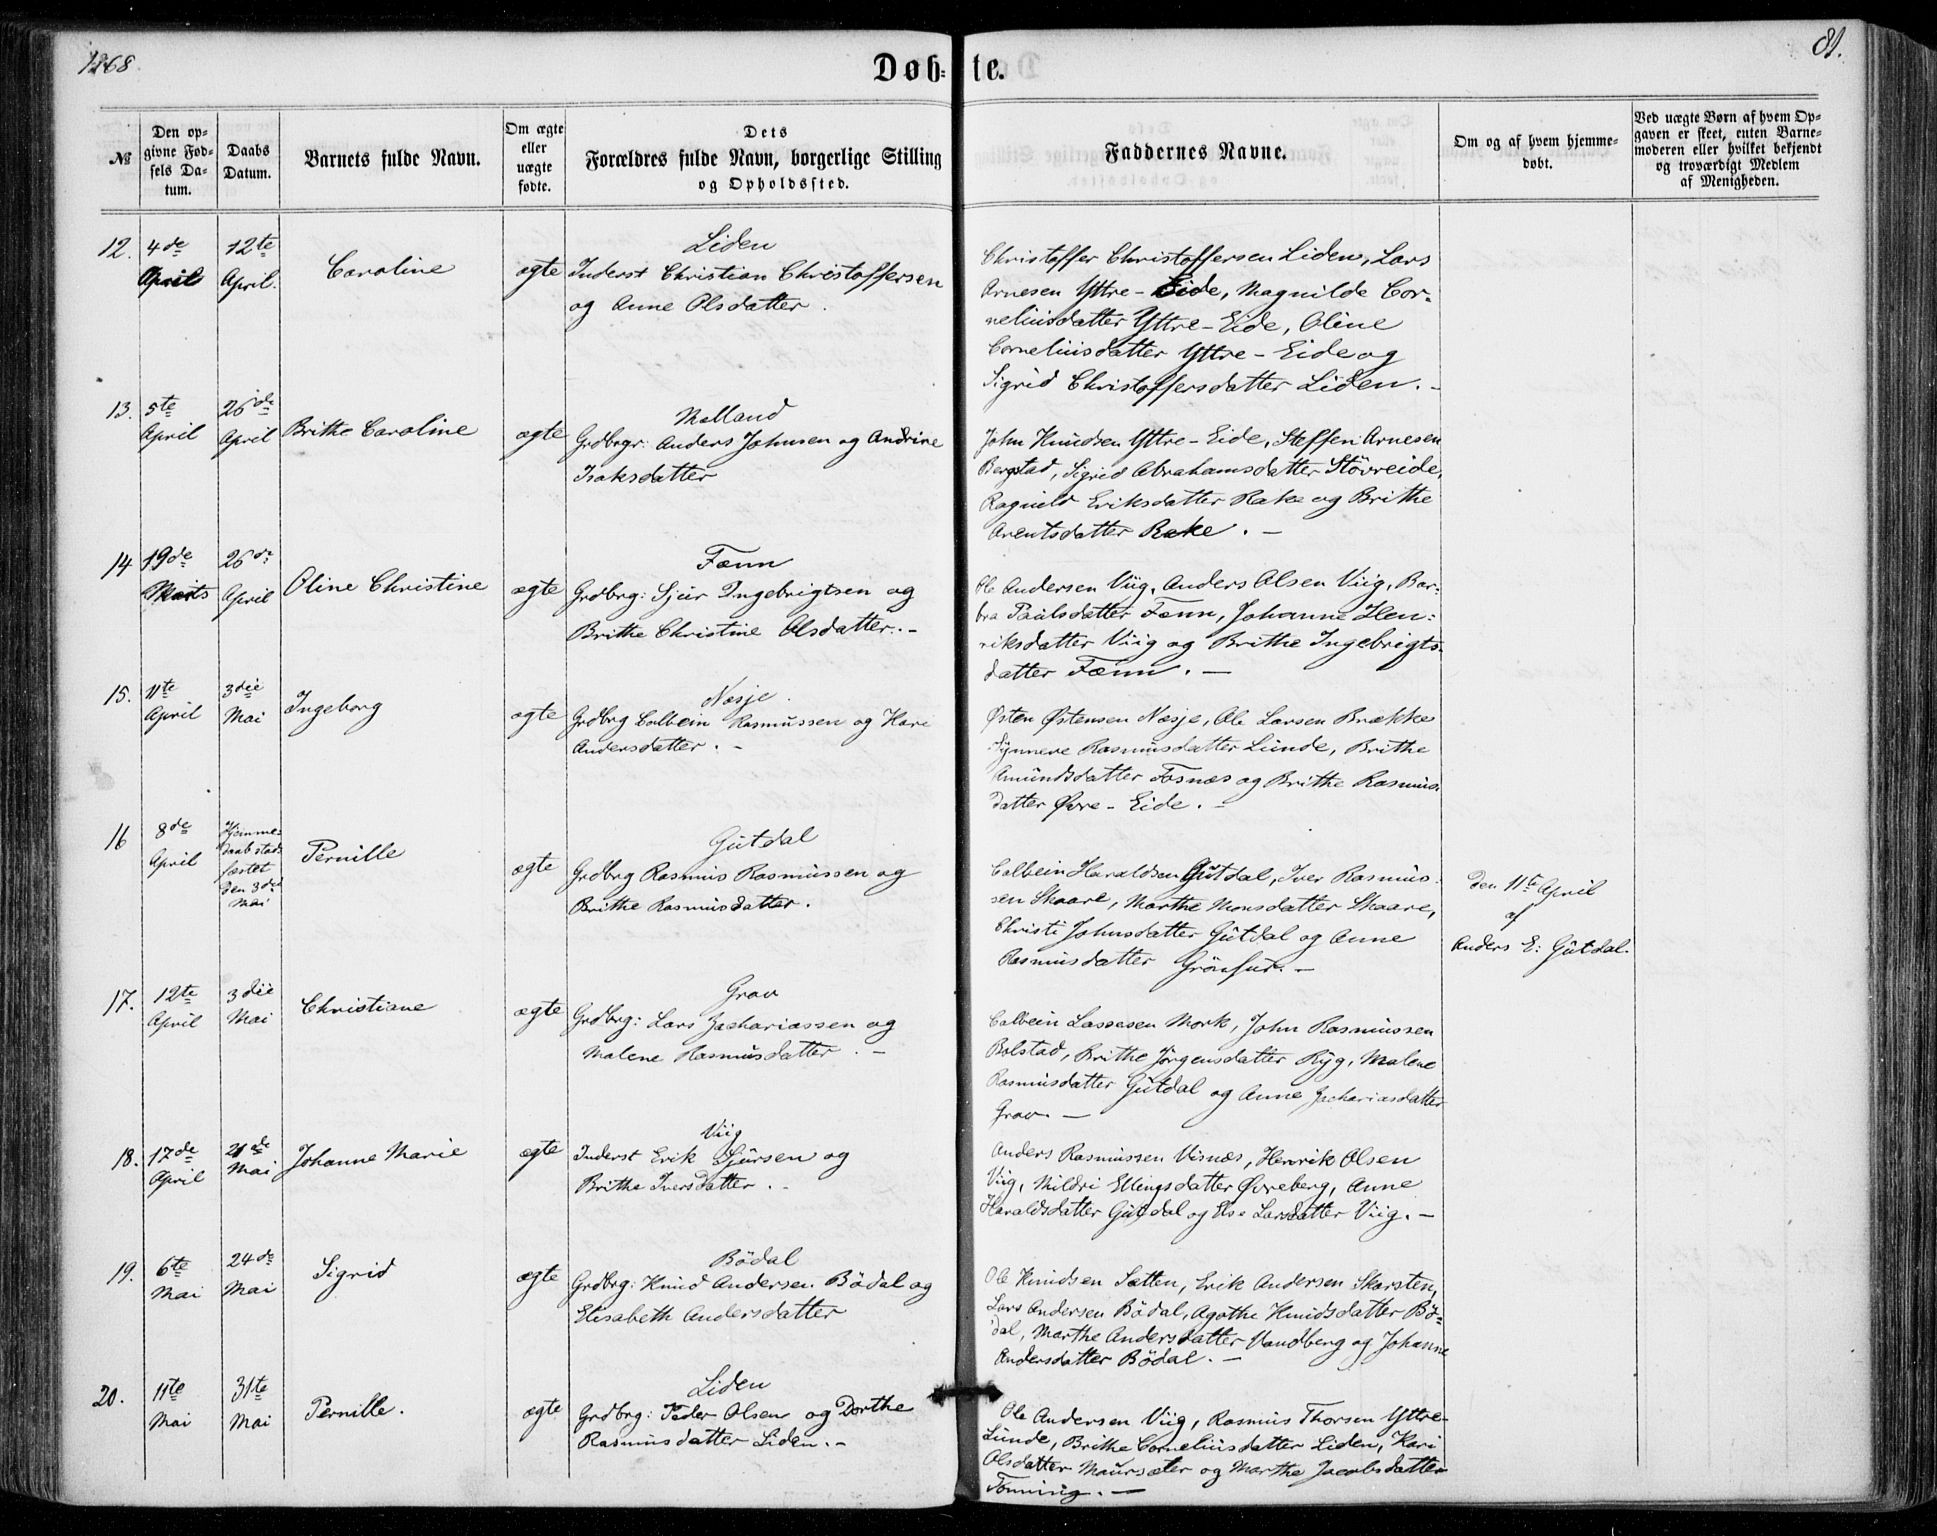 1868
Døb-te.
81.
№
Den op-
givne Fød-
sels Da-
tum.
Daabs
Datum.
Barnets fulde Navn.
Om ægte
eller
uægte
fødte.
Dets
Forældres fulde Navn, borgerlige Stilling
og Opholdssted.
Faddernes Navne.
Om og af hvem hjemme-
døbt.
Ved uægte Børn af hvem Op-
gaven er skeet, enten Barne-
moderen eller hvilket bekjendt
og troværdigt Medlem
af Menigheden.
12.
4de
April
12te
April.
Caroline
ægte
Liden
Inderst Christian Christoffersen
og Anne Olsdatter.
Christoffer Christoffersen Liden, Lars
Arnesen Yttre-Eide, Magnilde Cor-
neliusdatter Yttre-Eide, Oline
Corneliusdatter Yttre-Eide og
Sigrid Christoffersdatter Liden.-
13.
5te
April
26de
April
Brithe Caroline
ægte
Melland
Grdbrgr: Anders Johnsen og Andrine
Isaksdatter
John Knudsen Yttre-Eide, Steffen Arnesen
Bergstad, Sigrid Abrahamsdatter Störreide,
Ragnild Eriksdatter Rake og Brithe
Arentsdatter Rake. -
14
19de
Marts
26de
April
Oline Christine
ægte
Fænn
Grdbrg: Sjur Ingebrigtsen og
Brithe Christine Olsdatter.-
Ole Andersen Viig, Anders Olsen Viig, Bar-
bra Paulsdatter Fænn, Johanne Hen-
riksdatter Viig og Brithe Ingebrigts-
datter Fænn. -
15.
11te
April
3die
Mai
Ingeborg
ægte
Nesje.
Grdbrg Colbein Rasmussen og Kari
Andersdatter. -
Østen Østensen Nesje, Ole Larsen Brække
Synneve Rasmusdatter Lunde, Brithe
Amundsdatter Fosnæs og Brithe Rasmus-
datter Øvre-Eide. -
16
8de
April
Hjemme-
daab stad-
fæstet
den 3die
Mai
Pernille
ægte
Gutdal
Grdbrg Rasmus Rasmussen og
Brithe Rasmusdatter.
Colbein Haraldsen Gutdal, Iver Rasmus-
sen Skaare, Marthe Monsdatter Skaare,
Christi Johnsdatter Gutdal og Anne
Rasmusdatter Grönfur. -
den 11te April
af
Anders E: Gutdal.
17.
12te
April
3die
Mai
Christiane
ægte
Grav
Grdbrg: Lars Zachariassen og
Malene Rasmusdatter. -
Colbein Lassesen Mork, John Rasmussen
Bolstad, Brithe Jørgensdatter Ryg, Malene
Rasmusdatter Gutdal og Anne Zachariasdatter
Grav. -
18.
17de
April
21de
Mai
Johanne Marie
ægte
Viig
Inderst Erik Sjursen og
Brithe Iversdatter. -
Anders Rasmussen Visnæs, Henrik Olsen
Viig, Mildri Ellingsdatter Øvreberg, Anne
Haraldsdatter Gutdal og Else Larsdatter Viig. -
19.
6te
Mai
24de
Mai
Sigrid
ægte
Bödal
Grdbrg: Knud Andersen Bödal og
Elisabeth Andersdatter
Ole Knudsen Sætten, Erik Andersen Skarsten,
Lars Andersen Bödal, Agathe Knudsdatter Bö-
dal, Marthe Andersdatter Vandberg og Johanne
Andersdatter Bödal. -
20.
11te
Mai
31te
Mai
Pernille.
ægte
Liden
Grdbrg: Peder Olsen og Dorthe
Rasmusdatter Liden. -
Ole Andersen Viig, Rasmus Thorsen Yttre-
Lunde, Brithe Corneliusdatter Liden, Kari
Olsdatter Maurseter og Marthe Jacobsdatter
Tonning. -